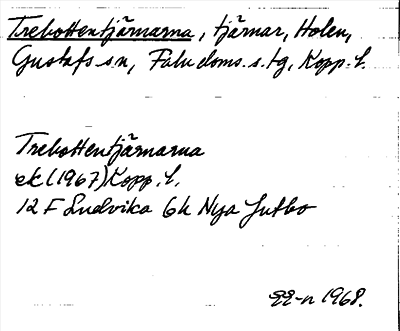 Trebottentjärnarna, tjärnar, Holen,
Gustafs sn, Falu doms. s. tg, Kopp. l.
Trebottentjärnarna
ek (1967) Kopp. l.
12 F Ludvika 6h Nya Jutbo
1968.